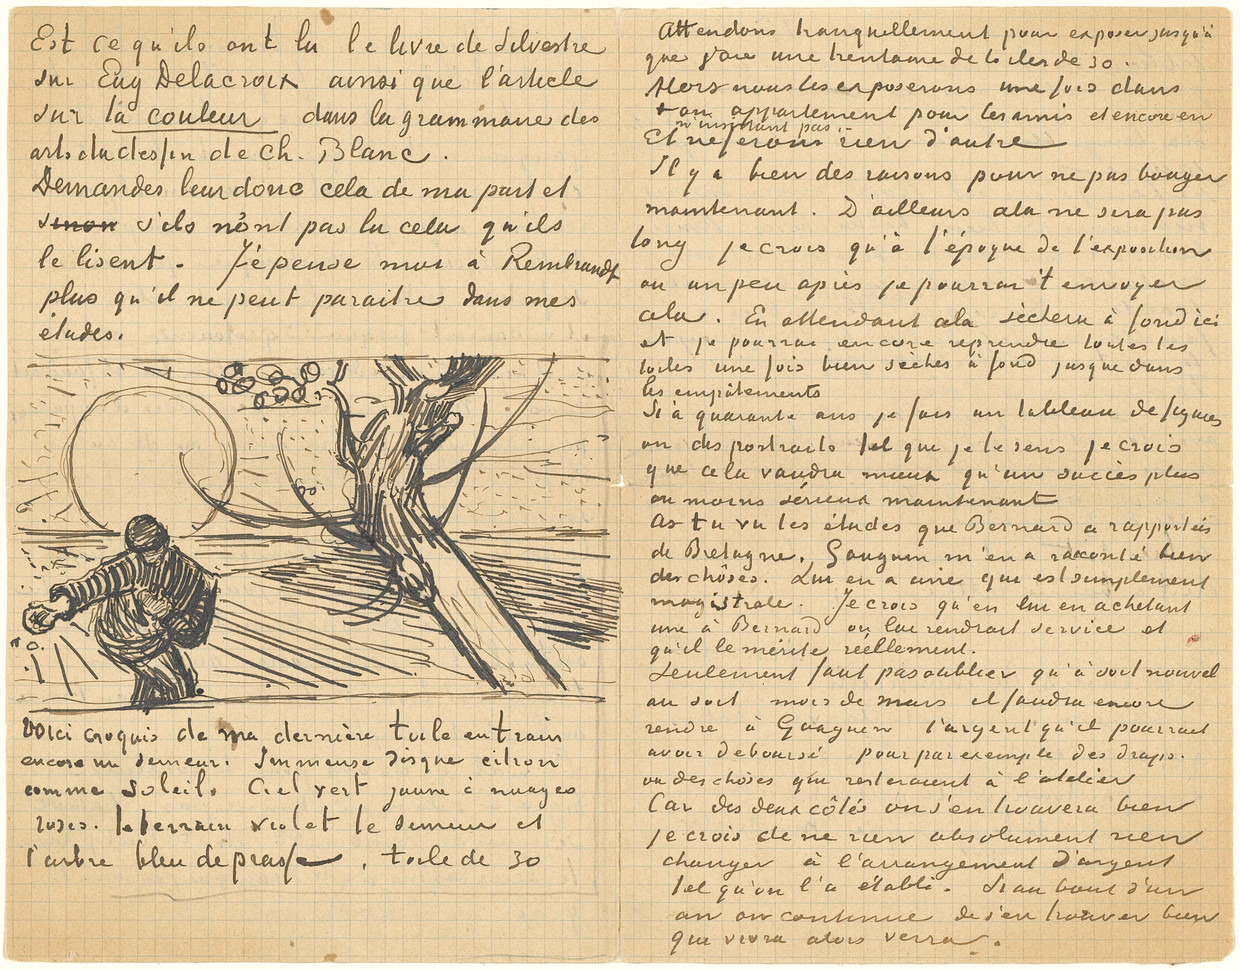 Est ce qu'ils ont lu le livre de Silvestre
sur Eug Delacroix ainsi que l'article
sur la couleur dans la grammaire des
arts du dessin de Ch. Blanc.
Demandes leur donc cela de ma part et
sinon s'ils n'ont pas lu cela qu'ils
le lisent. J'épense moi à Rembrandt
plus qu'il ne peut paraitre dans mes
études.
Voici croquis de ma dernière toile en train
encore un semeur. Immense disque citron
comme soleil. Ciel vert jaune à nuages
roses. le terrain violet le semeur et
l'arbre bleu de prusse. toile de 30
Attendons tranquillement pour exposer jusqu'à
que j'aie une trentaine de toiles de 30.
Alors nous les exposerons une fois dans
ton appartement pour les amis et encore en
n'insistant pas.
Et ne ferons rien d'autre
Il y a bien des raisons pour ne pas bouger
maintenant. D'ailleurs cela ne sera pas
long je crois qu'à l'époque de l'exposition
ou un peu après je pourrai t'envoyer
cela. En attendant cela sèchera à fond ici
et je pourrai encore reprendre toutes les
toiles une fois bien sèches à fond jusque dans
les empâtements
Si à quarante ans je fais un tableau de figures
ou des portraits tel que je le sens je crois
que cela vaudra mieux qu'un succès plus
ou moins sérieux maintenant
As tu vu les études que Bernard a rapportées
de Bretagne, Gauguin m'en a raconté bien
des choses. Lui en a une qui est simplement
magistrale. Je crois qu'en lui en achetant
une à Bernard on lui rendrait service et
qu'il le mérite réellement.
Seulement faut pas oublier qu'à soit nouvel
an soit mois de mars il faudra encore
rendre à Gauguin l'argent qu'il pourrait
avoir deboursé pour par exemple des draps.
ou des choses qui resteraient à l'atelier
Car des deux côtés on s'en trouvera bien
je crois de ne rien absolument rien
changer à l'arrangement d'argent
tel qu'on l'a établi. Si au bout d'un
an on continue de s'en trouver bien
qui vivra alors verra.